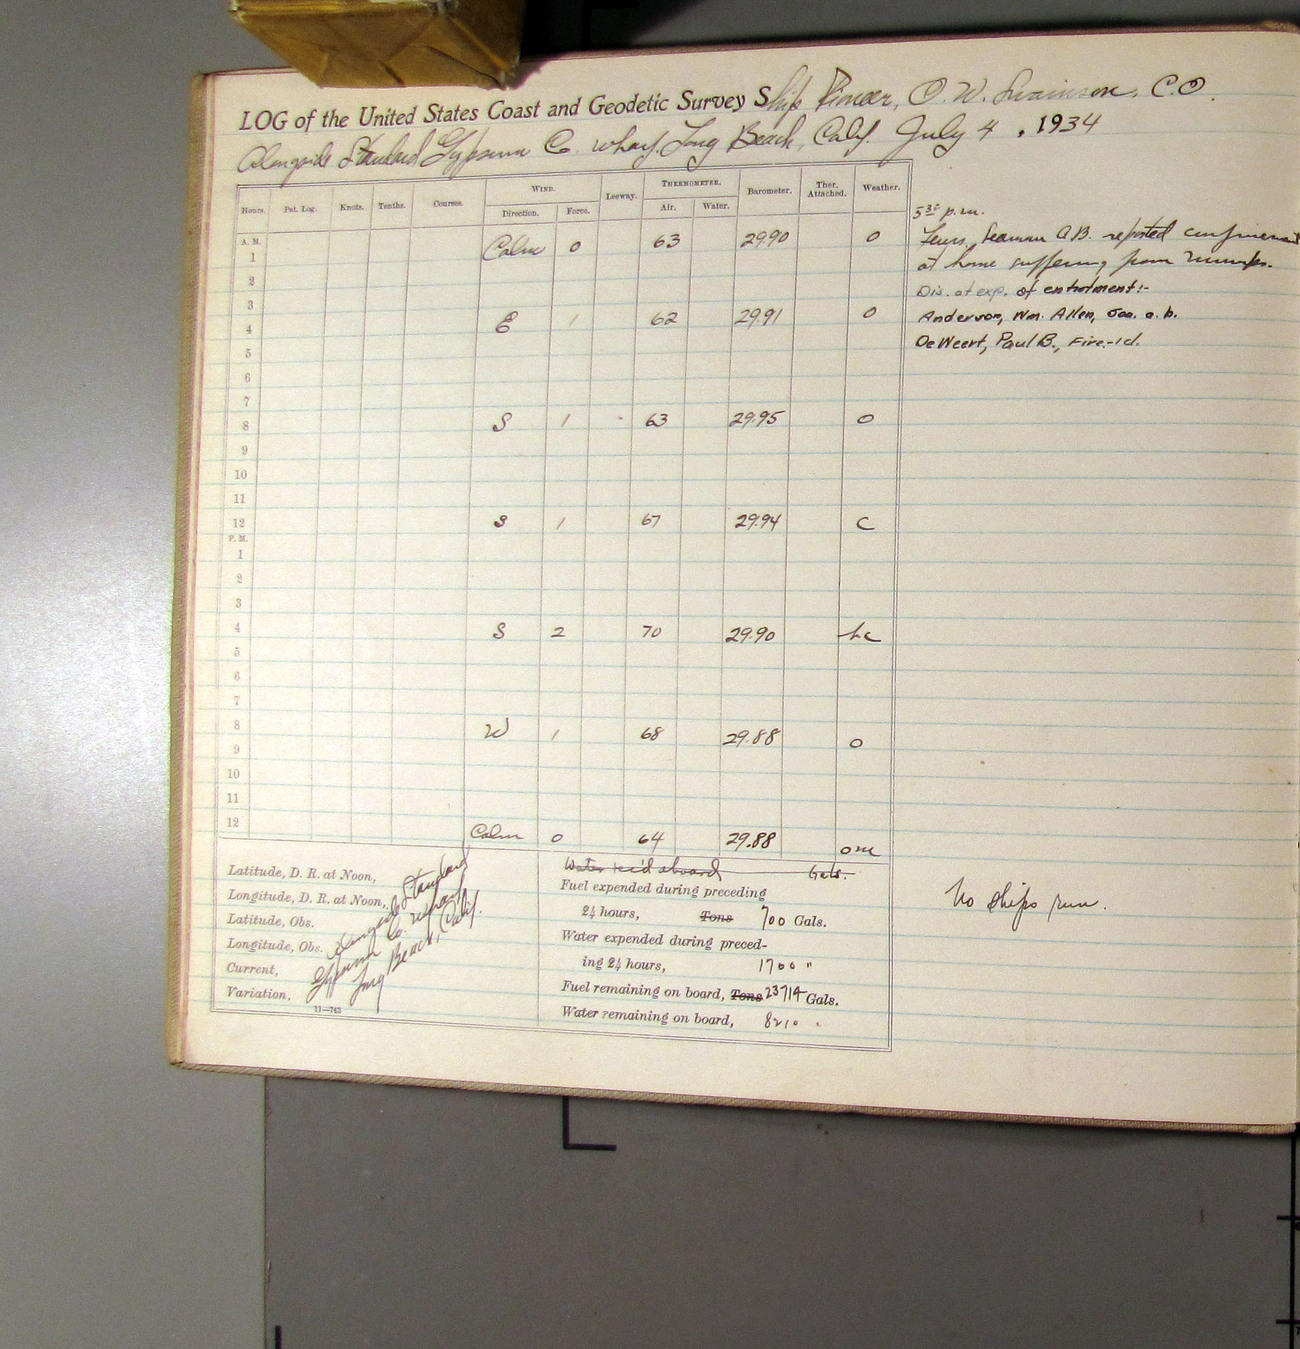 LOG of the United States Coast and Geodetic Survey Ship Pioneer, O. W. Swainson, C.O.
Alongside Standard Gypsum Co. wharf, Long Beach, Calif. July 4, 1934
Hours. Pat. Log. Knots. Tenths. Courses. WIND. Leeway. THERMOMETER. Barometer. Ther. Attached. Weather.
Direction. Force. Air. Water.
A. M.
1 Calm 0 63 29.90 o
2
3
4 E 1 62 29.91 o
5
6
7
8 S 1 - 63 29.95 o
9
10
11
12 S 1 67 29.94 c
P. M.
1
2
3
4 S 2 70 29.90 bc
5
6
7
8 W 1 68 29.88 o
9
10
11
12 Calm 0 64 29.88 om
5 30 p.m.
Seaman A.B. reported confinement
at home suffering from mumps.
Dis. at exp. of enrolment:-
Anderson, Wm. Allen, Sea. a.b.
DeWeert, Paul B., Fire.-1cl.
Latitude, D. R. at Noon,
Longitude, D. R. at Noon,
Latitude, Obs.
Longitude, Obs.
Current,
Variation,
Alongside Standard
Gypsum Co. wharf
Long Beach, Calif.
11—743
Water rec'd aboard Gals.
Fuel expended during preceding
24 hours, Tons 700 Gals.
Water expended during preced-
ing 24 hours, 1700 "
Fuel remaining on board, Tons 23714 Gals.
Water remaining on board, 8210 "
No ships run.